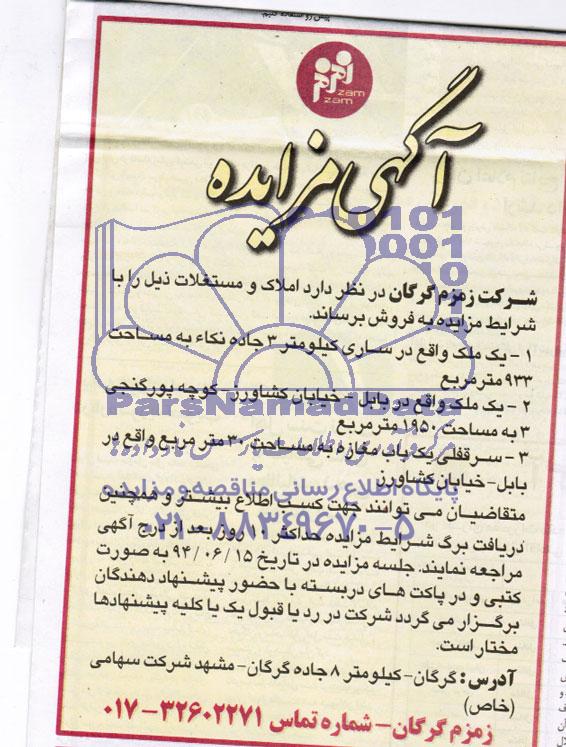 پیش رو استفاده کنیم
زمزم
zam
zam
آگهی مزایده
شرکت زمزم گرگان در نظر دارد املاک و مستغلات ذیل را با
شرایط مزایده به فروش برساند.
۱- یک ملک واقع در ساری کیلومتر ۳ جاده نکاء به مساحت
۹۳۳ مترمربع
۲- یک ملک واقع در بابل - خیابان کشاورز - کوچه پورگنجی
۳ به مساحت ۱۹۵۰ مترمربع
۳- سرقفلی یک باب مغازه به مساحت ۳۰ متر مربع واقع در
بابل- خیابان کشاورز
متقاضیان می توانند جهت کسب اطلاع بیشتر و همچنین
دریافت برگ شرایط مزایده حداکثر ۱۰ روز بعد از درج آگهی
مراجعه نمایند. جلسه مزایده در تاریخ ۹۴/۰۶/۱۵ به صورت
کتبی و در پاکت های دربسته با حضور پیشنهاد دهندگان
برگزار می گردد شرکت در رد یا قبول یک یا کلیه پیشنهادها
مختار است.
آدرس: گرگان- کیلومتر ۸ جاده گرگان- مشهد شرکت سهامی
(خاص)
زمزم گرگان- شماره تماس ۳۲۶۰۲۲۷۱-۰۱۷
0101
0001
10
ParsNamadData
پایگاه اطلاع رسانی مناقصه و مزایده
۰۲۱-۸۸۳۴۹۶۷۰-۵